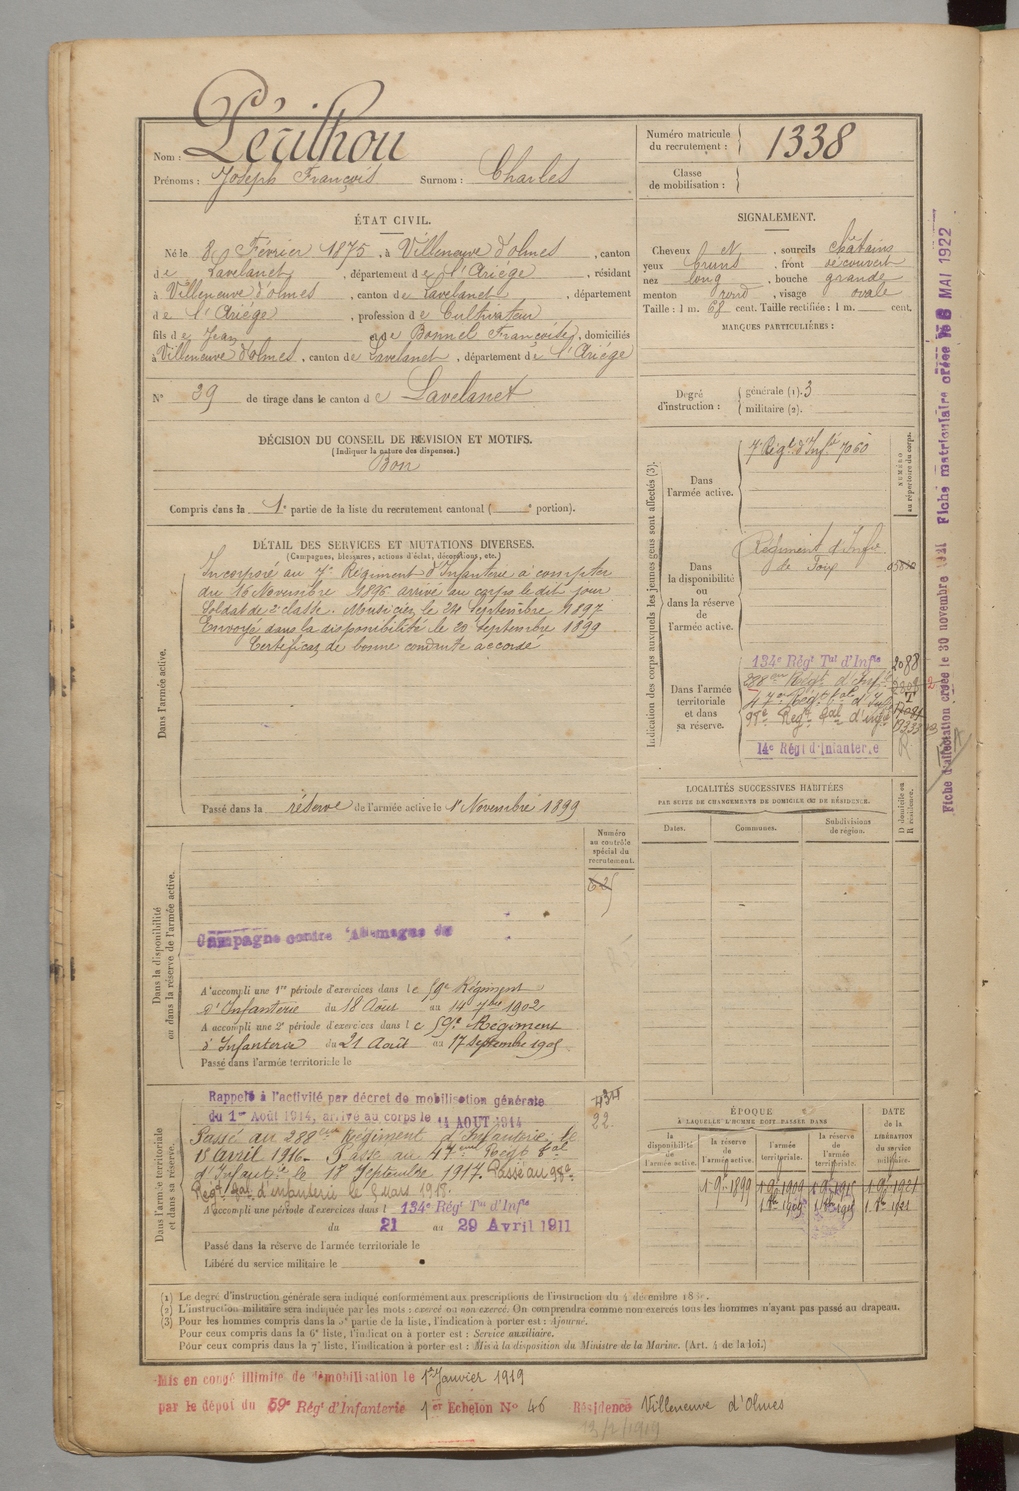 Nom : Périlhou
Prénoms : Joseph François Surnom : Charles
Numéro matricule du recrutement : 1338
Classe de mobilisation :
ÉTAT CIVIL.
Né le 8 Février 1875, à Villeneuve d'olmes, canton
de Lavelanet, département de l'Ariége, résidant
à Villeneuve d'olmes, canton de Lavelanet, département
de l'Ariége, profession de Cultivateur
fils de Jean et de Bonnel Françoise, domiciliés
à Villeneuve d'olmes, canton de Lavelanet, département de l'Ariége
N° 39 de tirage dans le canton de Lavelanet
SIGNALEMENT.
Cheveux et, sourcils châtains
yeux bruns, front découvert
nez long, bouche grande
menton rond, visage ovale
Taille : 1 m. 68 cent. Taille rectifiée : 1 m. cent.
MARQUES PARTICULIÈRES :
Degré d'instruction :
générale (1). 3
militaire (2).
DÉCISION DU CONSEIL DE RÉVISION ET MOTIFS.
(Indiquer la nature des dispenses.)
Bon
Compris dans la 1e partie de la liste du recrutement cantonal ( portion).
DÉTAIL DES SERVICES ET MUTATIONS DIVERSES.
(Campagnes, blessures, actions d'éclat, décorations, etc.)
Dans l'armée active.
Incorporé au 7e Régiment d'Infanterie à compter
du 16 Novembre 1896 arrivé au corps le dit jour
Soldat de 2e classe. Musicien le 24 Septembre 1897
Envoyé dans la disponibilité le 20 Septembre 1899
Certificat de bonne conduite accordé
Passé dans la réserve de l'armée active le 1er Novembre 1899
Indication des corps auxquels les jeunes gens sont affectés (3).
NUMÉRO au répertoire du corps.
Dans l'armée active.
7e Régt d'Infie 7060
Dans la disponibilité ou dans la réserve de l'armée active.
Régiment d'Infie
de Foix
Dans l'armée territoriale et dans sa réserve.
134e Régt Tal d'Infie 2088
288em Régt d'Infie
47e Regt tal d'Inf
98e Regt tal d'infie
14e Régt d'Infanterie
LOCALITÉS SUCCESSIVES HABITÉES
PAR SUITE DE CHANGEMENTS DE DOMICILE OU DE RÉSIDENCE.
Dates. Communes. Subdivisions de région. D domicile ou R résidence.
Numéro au contrôle spécial du recrutement.
Dans la disponibilité ou dans la réserve de l'armée active.
Campagne contre l'Allemagne du
A accompli une 1re période d'exercices dans le 59e Régiment
d'Infanterie du 18 Août au 14 7bre 1902
A accompli une 2e période d'exercices dans le 59e Régiment
d'Infanterie du 21 Août au 17 Septembre 1905
Passé dans l'armée territoriale le
Dans l'armée territoriale et dans sa réserve.
Rappelé à l'activité par décret de mobilisation générale
du 1er Août 1914, arrivé au corps le 11 AOUT 1914
22
Passé au 288em Régiment d'Infanterie le
15 avril 1916. Passé au 47eme Regt tal
d'Infanterie le 18 Septembre 1917. Passé au 98e
Regt tal d'infanterie le 5 mars 1918.
A accompli une période d'exercices dans l 134e Régt Tal d'Infie
du 21 au 29 Avril 1911
Passé dans la réserve de l'armée territoriale le
Libéré du service militaire le
ÉPOQUE
À LAQUELLE L'HOMME DOIT PASSER DANS
DATE de la LIBÉRATION du service militaire.
la disponibilité de l'armée active. la réserve de l'armée active. l'armée territoriale. la réserve de l'armée territoriale.
1 9e 1899 1 9e 1909 1 9e 1915 1 9e 1921
1 8bre 1909 1 8bre 1915 1 8bre 1921
(1) Le degré d'instruction générale sera indiqué conformément aux prescriptions de l'instruction du 4 décembre
(2) L'instruction militaire sera indiquée par les mots : exercé ou non exercé. On comprendra comme non exercés tous les hommes n'ayant pas passé au drapeau.
(3) Pour les hommes compris dans la 5e partie de la liste, l'indication à porter est : Ajourné.
Pour ceux compris dans la 6e liste, l'indication à porter est : Service auxiliaire.
Pour ceux compris dans la 7e liste, l'indication à porter est : Mis à la disposition du Ministre de la Marine. (Art. 4 de la loi.)
Mis en congé illimité de démobilisation le 1er Janvier 1919
par le dépôt du 59e Régt d'Infanterie 1er Echelon N° 46 Résidence Villeneuve d'Olmes
13/2/1919
Fiche d'affectation créée le 30 novembre 1921 Fiche matriculaire créée le 6 MAI 1922